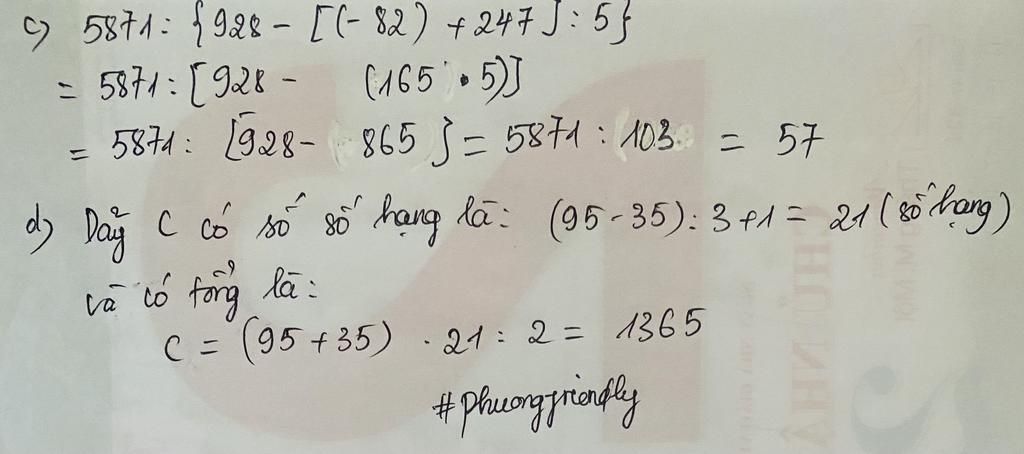 c) 5871 : {928 - [(-82) + 247] : 5}
= 5871 : [928 - (165 . 5)]
= 5871 : [928 - 865] = 5871 : 103 = 57
d) Dãy C có số số hạng là: (95 - 35) : 3 + 1 = 21 (số hạng)
và có tổng là:
C = (95 + 35) . 21 : 2 = 1365
#phuongfriendly